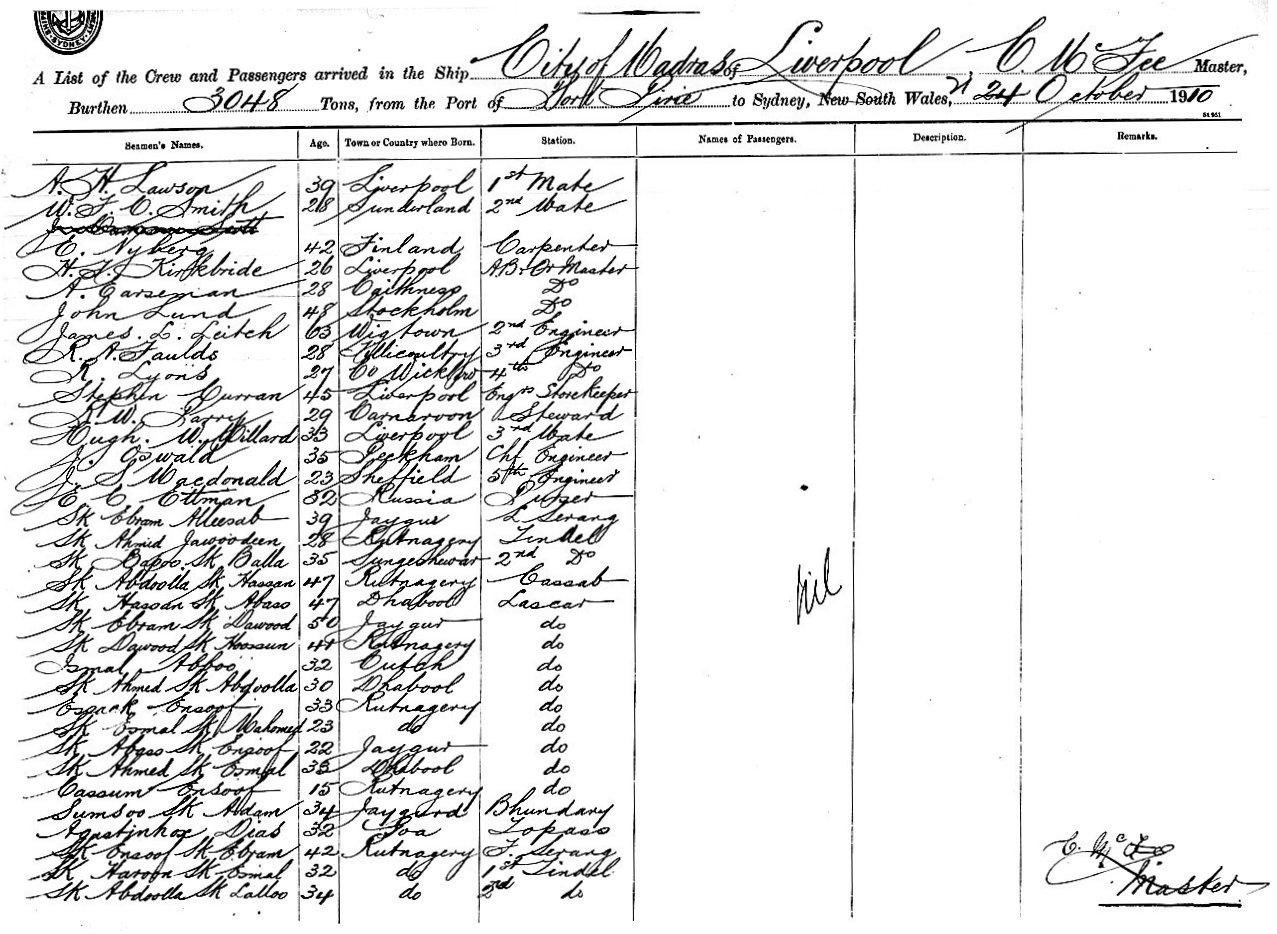 SYDNEY
A List of the Crew and Passengers arrived in the Ship City of Madras of Liverpool, C. McFee Master,
Burthen 3048 Tons, from the Port of Port Pirie to Sydney, New South Wales, 24 October 1910
Seamen's Names. Age. Town or Country where Born. Station. Names of Passengers. Description. Remarks.
A. H. Lawson 39 Liverpool 1st Mate
W. F. C. Smith 28 Sunderland 2nd Mate
C. Nyberg 42 Finland Carpenter
H. Kirkbride 26 Liverpool
A. Carseman 28 Caithness Do
John Lund 48 Stockholm Do
James. L. Leitch 63 Wigtown 2nd Engineer
R. A. Faulds 28 Tillicoultry 3rd Engineer
R. Lyons 27 Co Wicklow 4th Do
Stephen Curran 45 Liverpool Engrs Storekeeper
R. W. Parry 29 Carnarvon Steward
Hugh. W. Millard 33 Liverpool 3rd Mate
J. Oswald 35 Peckham Chf Engineer
J. S Macdonald 23 Sheffield 5th Engineer
E C Ettman 32 Russia Purser
Sk Ebram Alleesab 39 Jaygur Serang
Sk Ahmed Jawoodeen 28 Rutnagery Tindel
Sk Bapoo Sk Balla 35 Sungeshwar 2nd Do
Sk Abdoolla Sk Hassan 47 Rutnagery Cassab
Sk Hassan Sk Abaso 47 Dhabool Lascar
Sk Ebram Sk Dawood 50 Jaygur do
Sk Dawood Sk Hoossun 41 Rutnagery do
Esmal Abboo 32 Cutch do
Sk Ahmed Sk Abdoolla 30 Dhabool do
Essack Ensoof 33 Rutnagery do
Sk Esmal Sk Mahomed 23 do do
Sk Abaso Sk Ensoof 22 Jaygur do
Sk Ahmed Sk Esmal 35 Dhabool do
Cassum Ensoof 15 Rutnagery do
Sumsoo Sk Adam 34 Jaygurd Bhundary
Agostinho Dias 32 Goa Topass
Sk Ensoof Sk Ebram 42 Rutnagery F. Serang
Sk Haroon Sk Esmal 32 do 1st Tindel
Sk Abdoolla Sk Lalloo 34 do 2nd do
Nil
C. McFee
Master